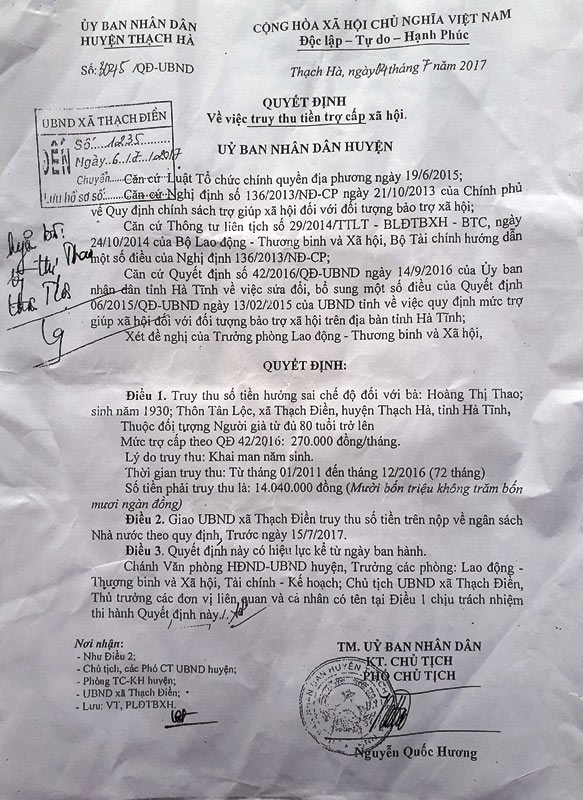 ỦY BAN NHÂN DÂN
HUYỆN THẠCH HÀ
Số: 3045 /QĐ-UBND
CỘNG HÒA XÃ HỘI CHỦ NGHĨA VIỆT NAM
Độc lập – Tự do – Hạnh Phúc
Thạch Hà, ngày 04 tháng 7 năm 2017
QUYẾT ĐỊNH
Về việc truy thu tiền trợ cấp xã hội.
UBND XÃ THẠCH ĐIỀN
ĐẾN
Số: 1235
Ngày 6/7/2017
Chuyển
Lưu hồ sơ số
ỦY BAN NHÂN DÂN HUYỆN
Căn cứ Luật Tổ chức chính quyền địa phương ngày 19/6/2015;
Căn cứ Nghị định số 136/2013/NĐ-CP ngày 21/10/2013 của Chính phủ
về Quy định chính sách trợ giúp xã hội đối với đối tượng bảo trợ xã hội;
Căn cứ Thông tư liên tịch số 29/2014/TTLT - BLĐTBXH - BTC, ngày
24/10/2014 của Bộ Lao động - Thương binh và Xã hội, Bộ Tài chính hướng dẫn
một số điều của Nghị định 136/2013/NĐ-CP;
Căn cứ Quyết định số 42/2016/QĐ-UBND ngày 14/9/2016 của Ủy ban
nhân dân tỉnh Hà Tĩnh về việc sửa đổi, bổ sung một số điều của Quyết định
06/2015/QĐ-UBND ngày 13/02/2015 của UBND tỉnh về việc quy định mức trợ
giúp xã hội đối với đối tượng bảo trợ xã hội trên địa bàn tỉnh Hà Tĩnh;
Xét đề nghị của Trưởng phòng Lao động - Thương binh và Xã hội,
QUYẾT ĐỊNH:
Điều 1. Truy thu số tiền hưởng sai chế độ đối với bà: Hoàng Thị Thao;
sinh năm 1930; Thôn Tân Lộc, xã Thạch Điền, huyện Thạch Hà, tỉnh Hà Tĩnh,
Thuộc đối tượng Người già từ đủ 80 tuổi trở lên
Mức trợ cấp theo QĐ 42/2016: 270.000 đồng/tháng.
Lý do truy thu: Khai man năm sinh.
Thời gian truy thu: Từ tháng 01/2011 đến tháng 12/2016 (72 tháng)
Số tiền phải truy thu là: 14.040.000 đồng (Mười bốn triệu không trăm bốn
mươi ngàn đồng)
Điều 2. Giao UBND xã Thạch Điền truy thu số tiền trên nộp về ngân sách
Nhà nước theo quy định, Trước ngày 15/7/2017.
Điều 3. Quyết định này có hiệu lực kể từ ngày ban hành.
Chánh Văn phòng HĐND-UBND huyện, Trưởng các phòng: Lao động -
Thương binh và Xã hội, Tài chính - Kế hoạch; Chủ tịch UBND xã Thạch Điền,
Thủ trưởng các đơn vị liên quan và cá nhân có tên tại Điều 1 chịu trách nhiệm
thi hành Quyết định này./.
Nơi nhận:
- Như Điều 2;
- Chủ tịch, các Phó CT UBND huyện;
- Phòng TC-KH huyện;
- UBND xã Thạch Điền;
- Lưu: VT, PLĐTBXH.
TM. UỶ BAN NHÂN DÂN
KT. CHỦ TỊCH
PHÓ CHỦ TỊCH
Nguyễn Quốc Hương